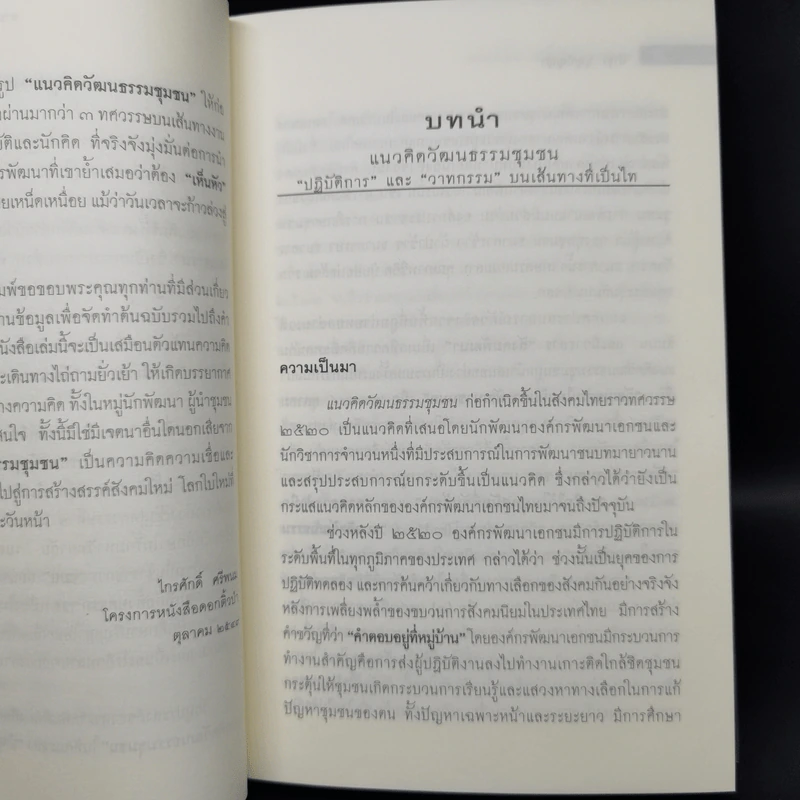 รูป “แนวคิดวัฒนธรรมชุมชน” ให้ก่อ
ผ่านมากว่า ๓ ทศวรรษบนเส้นทางงาน
บัติและนักคิด ที่จริงจังมุ่งมั่นต่อการนำ
รพัฒนาที่เขาย้ำเสมอว่าต้อง “เห็นหัว”
ยเหน็ดเหนื่อย แม้ว่าวันเวลาจะก้าวล่วงสู่
มพ์ขอขอบพระคุณทุกท่านที่มีส่วนเกี่ยว
านข้อมูลเพื่อจัดทำต้นฉบับรวมไปถึงคำ
นังสือเล่มนี้จะเป็นเสมือนตัวแทนความคิด
ะเดินทางไถ่ถามยั่วเย้า ให้เกิดบรรยากาศ
างความคิด ทั้งในหมู่นักพัฒนา ผู้นำชุมชน
สนใจ ทั้งนี้มิใช่มีเจตนาอื่นใดนอกเสียจาก
รรมชุมชน” เป็นความคิดความเชื่อและ
ไปสู่การสร้างสรรค์สังคมใหม่ โลกใบใหม่ที่
ะวันหน้า
ไกรศักดิ์
โครงการหนังสือดอกติ้วป่า
ตุลาคม
บทนำ
แนวคิดวัฒนธรรมชุมชน
“ปฏิบัติการ” และ “วาทกรรม” บนเส้นทางที่เป็นไท
ความเป็นมา
แนวคิดวัฒนธรรมชุมชน ก่อกำเนิดขึ้นในสังคมไทยราวทศวรรษ
๒๕๒๐ เป็นแนวคิดที่เสนอโดยนักพัฒนาองค์กรพัฒนาเอกชนและ
นักวิชาการจำนวนหนึ่งที่มีประสบการณ์ในการพัฒนาชนบทมายาวนาน
และสรุปประสบการณ์ยกระดับขึ้นเป็นแนวคิด ซึ่งกล่าวได้ว่ายังเป็น
กระแสแนวคิดหลักขององค์กรพัฒนาเอกชนไทยมาจนถึงปัจจุบัน
ช่วงหลังปี ๒๕๒๐ องค์กรพัฒนาเอกชนมีการปฏิบัติการใน
ระดับพื้นที่ในทุกภูมิภาคของประเทศ กล่าวได้ว่า ช่วงนั้นเป็นยุคของการ
ปฏิบัติทดลอง และการค้นคว้าเกี่ยวกับทางเลือกของสังคมกันอย่างจริงจัง
หลังการเพลี่ยงพล้ำของขบวนการสังคมนิยมในประเทศไทย มีการสร้าง
คำขวัญที่ว่า “คำตอบอยู่ที่หมู่บ้าน” โดยองค์กรพัฒนาเอกชนมีกระบวนการ
ทำงานสำคัญคือการส่งผู้ปฏิบัติงานลงไปทำงานเกาะติดใกล้ชิดชุมชน
กระตุ้นให้ชุมชนเกิดกระบวนการเรียนรู้และแสวงหาทางเลือกในการแก้
ปัญหาชุมชนของตน ทั้งปัญหาเฉพาะหน้าและระยะยาว มีการศึกษา